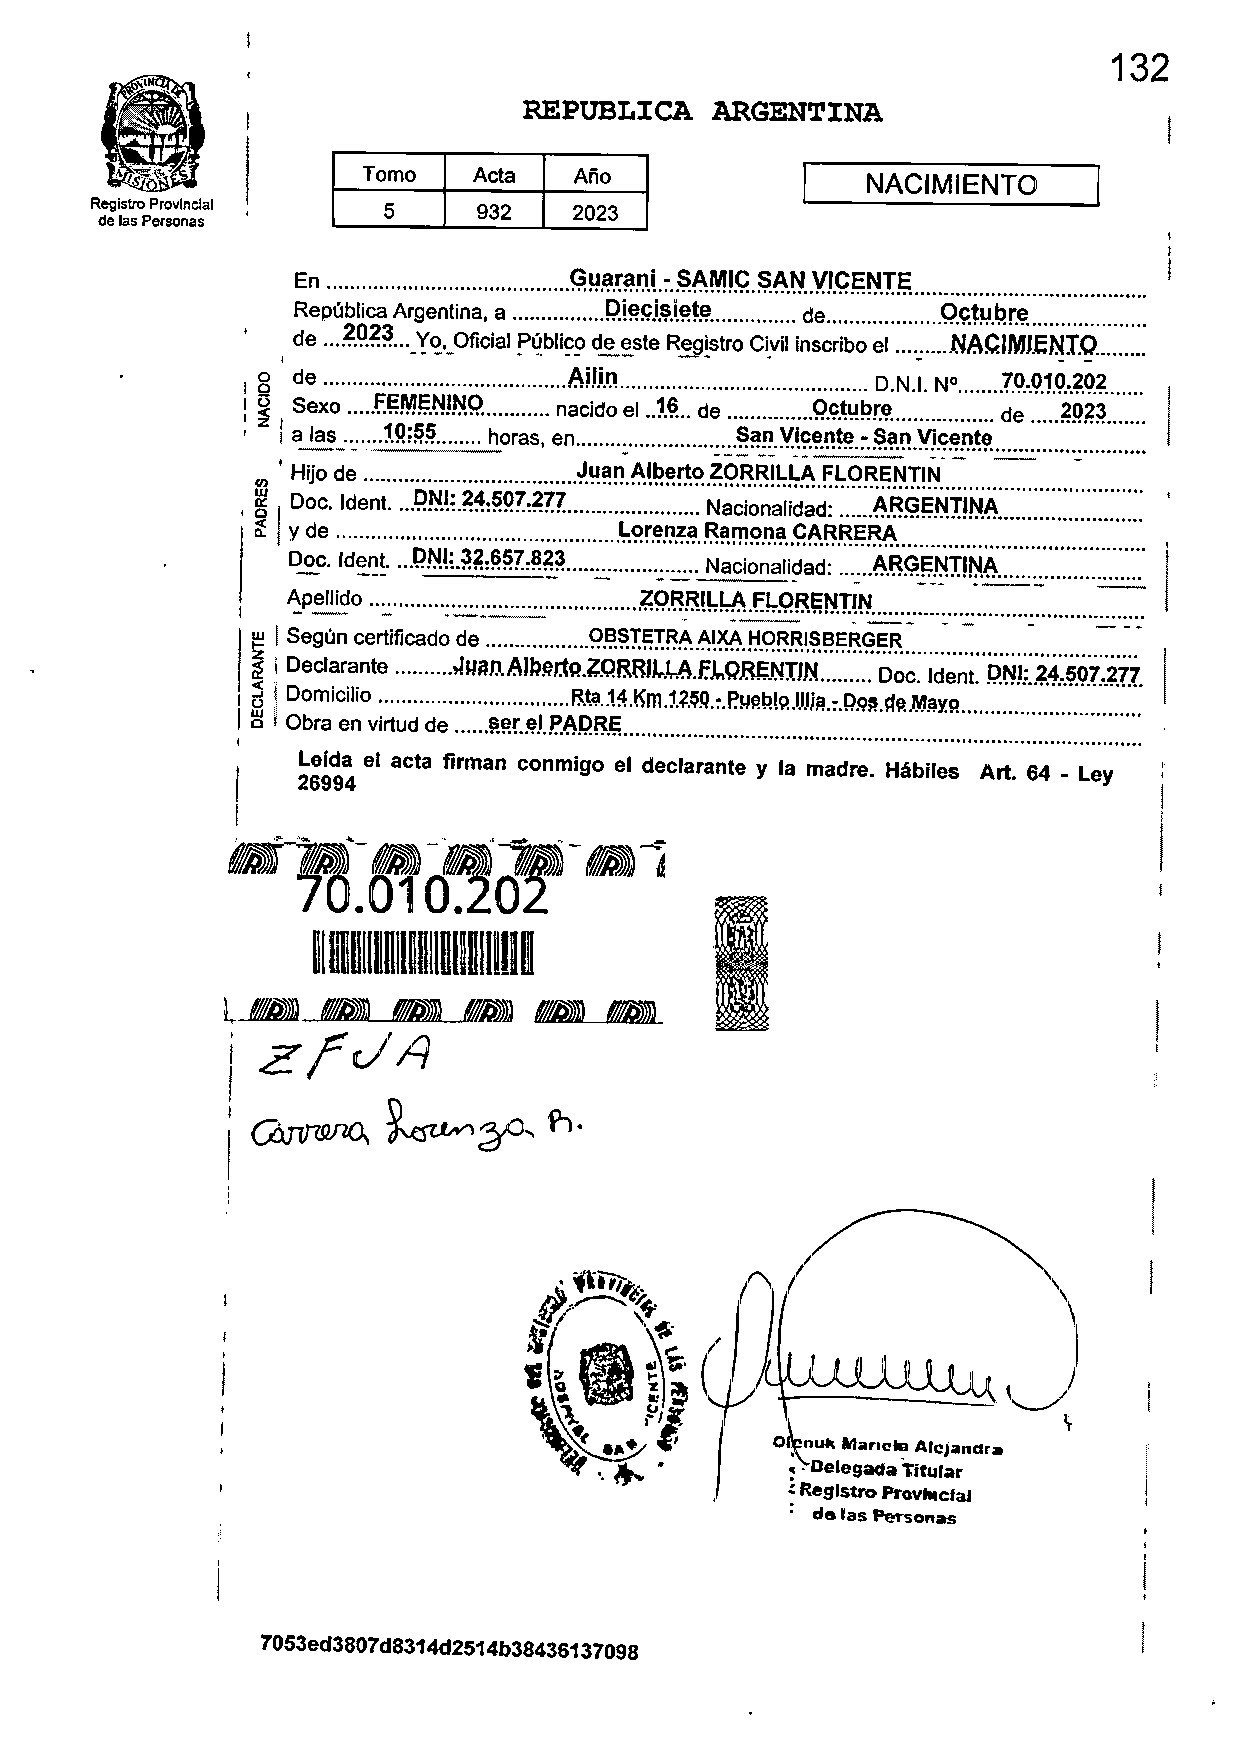 132
PROVINCIA DE
MISIONES
Registro Provincial
de las Personas
REPUBLICA ARGENTINA
Tomo Acta Año
5 932 2023
NACIMIENTO
En Guarani - SAMIC SAN VICENTE
República Argentina, a Diecisiete de Octubre
de 2023 Yo, Oficial Público de este Registro Civil inscribo el NACIMIENTO
NACIDO
de Ailin D.N.I. Nº 70.010.202
Sexo FEMENINO nacido el 16 de Octubre de 2023
a las 10:55 horas, en San Vicente - San Vicente
PADRES
Hijo de Juan Alberto ZORRILLA FLORENTIN
Doc. Ident. DNI: 24.507.277 Nacionalidad: ARGENTINA
y de Lorenza Ramona CARRERA
Doc. Ident. DNI: 32.657.823 Nacionalidad: ARGENTINA
Apellido ZORRILLA FLORENTIN
DECLARANTE
Según certificado de OBSTETRA AIXA HORRISBERGER
Declarante Juan Alberto ZORRILLA FLORENTIN Doc. Ident. DNI: 24.507.277
Domicilio Rta 14 Km 1250 - Pueblo Illia - Dos de Mayo
Obra en virtud de ser el PADRE
Leída el acta firman conmigo el declarante y la madre. Hábiles Art. 64 - Ley
26994
70.010.202
ZFJA
Carrera Lorenza R.
DE LAS
HOSPITAL SAN VICENTE
Alejandra
Delegada Titular
Registro Provincial
de las Personas
7053ed3807d8314d2514b38436137098